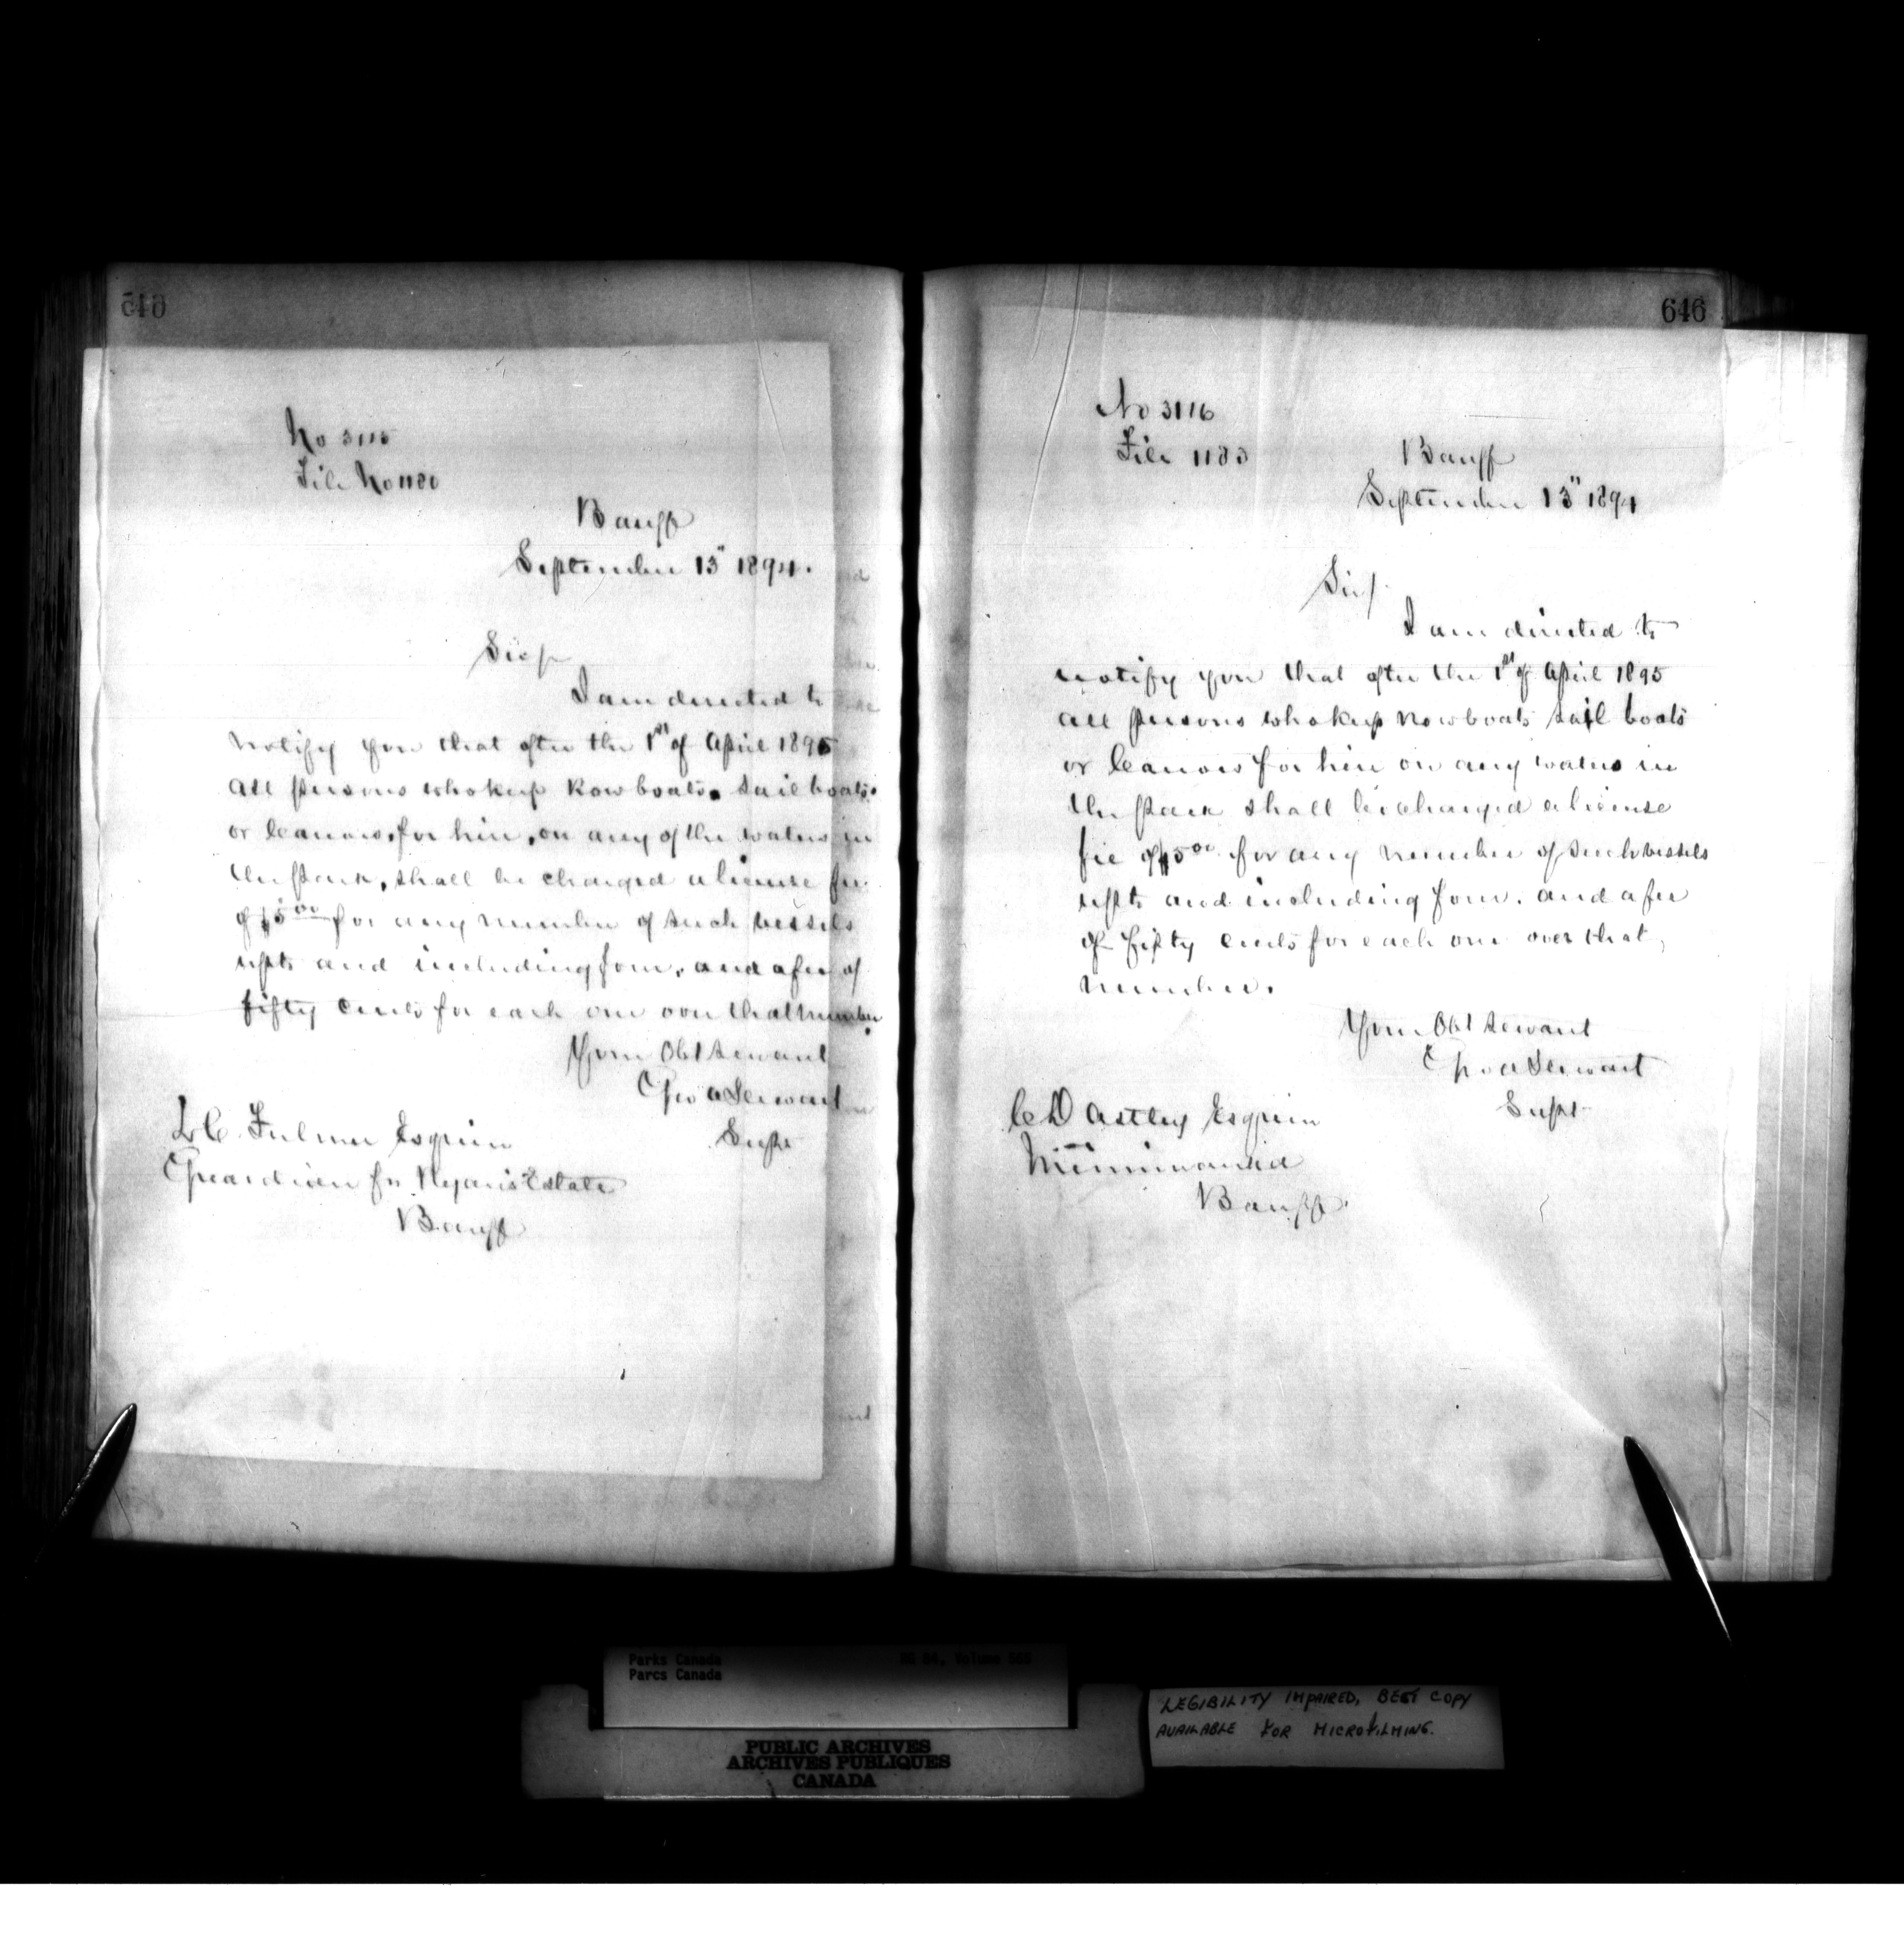 645
No 3115
File No 1180
Banff
September 13" 1894.
Sir/
I am directed to
notify you that after the 1st of April 1895
all persons who keep Row boats, sail boats,
or Canoes, for hire, on any of the waters in
the Park, shall be charged a license fee
of $5 00 for any number of such vessels
upto and including four, and a fee of
fifty cents for each one over that number.
Your Obt servant
Geo A Stewart
Supt
Fulmer Esquire
Guardian for Estate
Banff
646
No 3116
File 1183
Banff
September 13" 1894
Sir/
I am directed to
notify you that after the 1st of April 1895
all persons who keep row boats sail boats
or Canoes for hire on any waters in
the Park shall be charged a license
fee of $5 00 for any number of such vessels
upto and including four. and a fee
of Fifty cents for each one over that,
number.
Your Obt servant
Geo A Stewart
Supt
C D Astley Esquire
Minniwanka
Banff.
Parks Canada
Parcs Canada
RG 84, Volume 565
PUBLIC ARCHIVES
ARCHIVES PUBLIQUES
CANADA
LEGIBILITY IMPAIRED, BEST COPY
AVAILABLE FOR MICROFILMING.